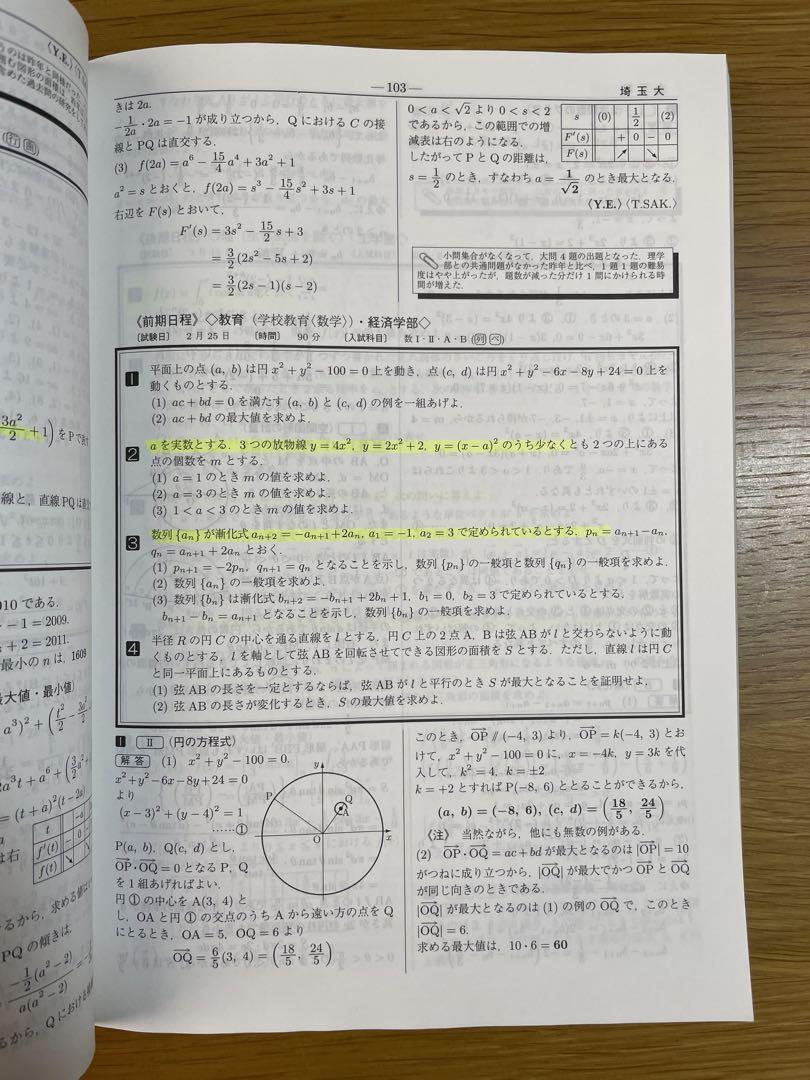 ―103―
埼玉大
きは 2a.
−1/(2a)・2a=−1 が成り立つから，Q における C の接
線と PQ は直交する．
(3) f(2a)=a⁶−(15/4)a⁴+3a²+1
a²=s とおくと，f(2a)=s³−(15/4)s²+3s+1
右辺を F(s) とおいて，
F′(s)=3s²−(15/2)s+3
=(3/2)(2s²−5s+2)
=(3/2)(2s−1)(s−2)
0<a<√2 より 0<s<2
であるから，この範囲での増
減表は右のようになる．
したがって P と Q の距離は，
s=1/2 のとき，すなわち a=1/√2 のとき最大となる．
s (0) 1/2 (2)
F′(s) + 0 −
F(s) ↗ ↘
〈Y.E.〉〈T.SAK.〉
小問集合がなくなって，大問 4 題の出題となった．理学
部との共通問題がなかった昨年と比べ，1 題 1 題の難易
度はやや上がったが，題数が減った分だけ 1 問にかけられる時
間が増えた．
《前期日程》◇教育（学校教育〈数学〉）・経済学部◇
〔試験日〕 2 月 25 日 〔時間〕 90 分 〔入試科目〕 数Ⅰ・Ⅱ・A・B (列 ベ)
1 平面上の点 (a, b) は円 x²+y²−100=0 上を動き，点 (c, d) は円 x²+y²−6x−8y+24=0 上を
動くものとする．
(1) ac+bd=0 を満たす (a, b) と (c, d) の例を一組あげよ．
(2) ac+bd の最大値を求めよ．
2 a を実数とする．3 つの放物線 y=4x², y=2x²+2, y=(x−a)² のうち少なくとも 2 つの上にある
点の個数を m とする．
(1) a=1 のとき m の値を求めよ．
(2) a=3 のとき m の値を求めよ．
(3) 1<a<3 のとき m の値を求めよ．
3 数列 {aₙ} が漸化式 aₙ₊₂=−aₙ₊₁+2aₙ, a₁=−1, a₂=3 で定められているとする．pₙ=aₙ₊₁−aₙ,
qₙ=aₙ₊₁+2aₙ とおく．
(1) pₙ₊₁=−2pₙ, qₙ₊₁=qₙ となることを示し，数列 {pₙ} の一般項と数列 {qₙ} の一般項を求めよ．
(2) 数列 {aₙ} の一般項を求めよ．
(3) 数列 {bₙ} は漸化式 bₙ₊₂=−bₙ₊₁+2bₙ+1, b₁=0, b₂=3 で定められているとする．
bₙ₊₁−bₙ=aₙ₊₁ となることを示し，数列 {bₙ} の一般項を求めよ．
4 半径 R の円 C の中心を通る直線を l とする．円 C 上の 2 点 A，B は弦 AB が l と交わらないように動
くものとする．l を軸として弦 AB を回転させてできる図形の面積を S とする．ただし，直線 l は円 C
と同一平面上にあるものとする．
(1) 弦 AB の長さを一定とするならば，弦 AB が l と平行のとき S が最大となることを証明せよ．
(2) 弦 AB の長さが変化するとき，S の最大値を求めよ．
1 Ⅱ （円の方程式）
解答 (1) x²+y²−100=0.
x²+y²−6x−8y+24=0
より
(x−3)²+(y−4)²=1
……①
P(a, b), Q(c, d) とし，
OP→・OQ→=0 となる P，Q
を 1 組あげればよい．
円 ① の中心を A(3, 4) と
し，OA と円 ① の交点のうち A から遠い方の点を Q
にとるとき，OA=5，OQ=6 より
OQ→=(6/5)(3, 4)=(18/5, 24/5)
y
P
Q
A
O
x
このとき，OP→ // (−4, 3) より，OP→=k(−4, 3) とお
けて，x²+y²−100=0 に，x=−4k，y=3k を代
入して，k²=4，k=±2
k=+2 とすれば P(−8, 6) ととることができるから，
(a, b)=(−8, 6), (c, d)=(18/5, 24/5)
《注》 当然ながら，他にも無数の例がある．
(2) OP→・OQ→=ac+bd が最大となるのは |OP→|=10
がつねに成り立つから，|OQ→| が最大でかつ OP→ と OQ→
が同じ向きのときである．
|OQ→| が最大となるのは (1) の例の OQ→ で，このとき
|OQ→|=6.
求める最大値は，10・6=60